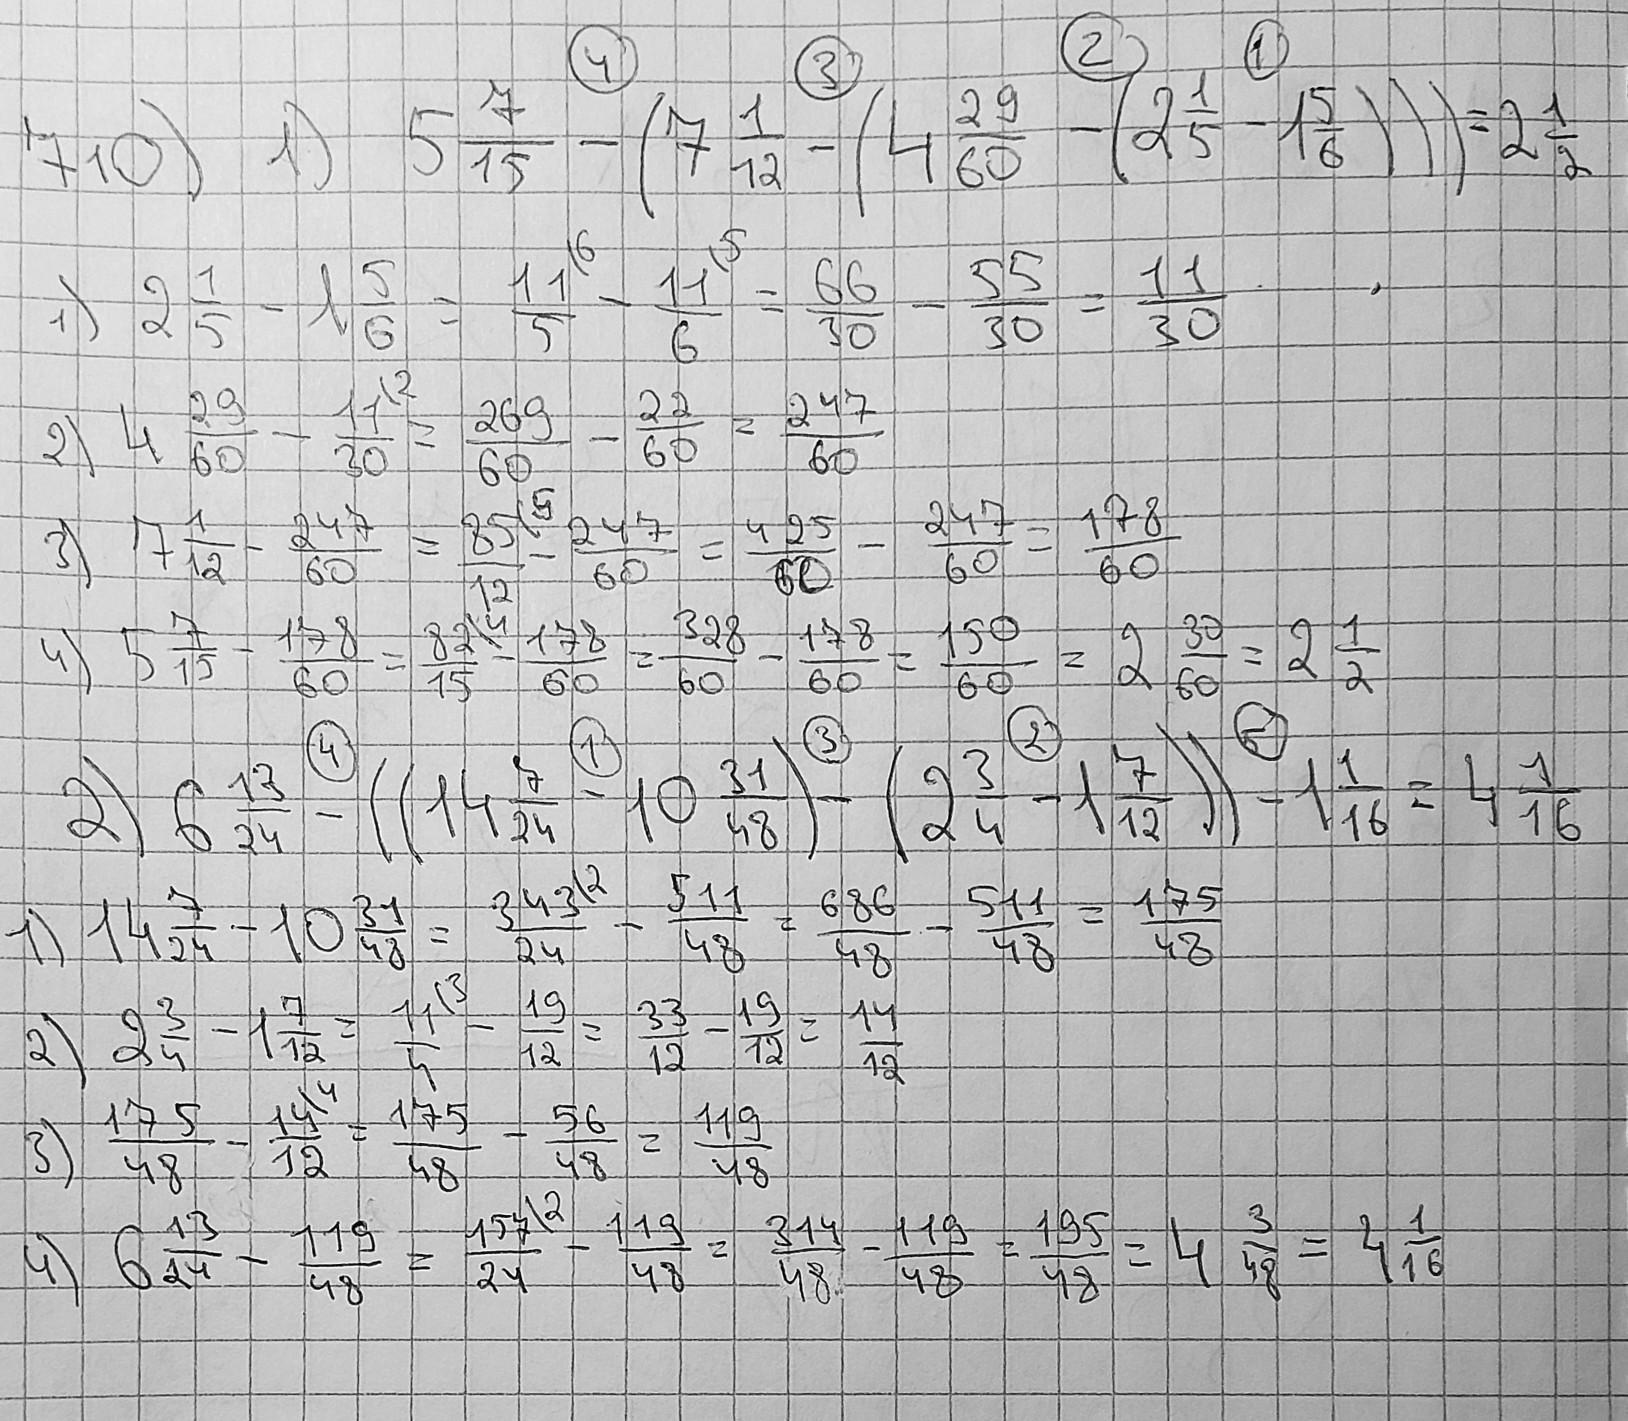 ④ ③ ② ①
710) 1) 5 7/15 - (7 1/12 - (4 29/60 - (2 1/5 - 1 5/6))) = 2 1/2
1) 2 1/5 - 1 5/6 = 11/5 \6 - 11/6 \5 = 66/30 - 55/30 = 11/30
2) 4 29/60 - 11/30 \2 = 269/60 - 22/60 = 247/60
3) 7 1/12 - 247/60 = 85/12 \5 - 247/60 = 425/60 - 247/60 = 178/60
4) 5 7/15 - 178/60 = 82/15 \4 - 178/60 = 328/60 - 178/60 = 150/60 = 2 30/60 = 2 1/2
④ ① ③ ② ⑤
2) 6 13/24 - ((14 7/24 - 10 31/48) - (2 3/4 - 1 7/12)) - 1 1/16 = 4 1/16
1) 14 7/24 - 10 31/48 = 343/24 \2 - 511/48 = 686/48 - 511/48 = 175/48
2) 2 3/4 - 1 7/12 = 11/4 \3 - 19/12 = 33/12 - 19/12 = 14/12
3) 175/48 - 14/12 \4 = 175/48 - 56/48 = 119/48
4) 6 13/24 - 119/48 = 157/24 \2 - 119/48 = 314/48 - 119/48 = 195/48 = 4 3/48 = 4 1/16